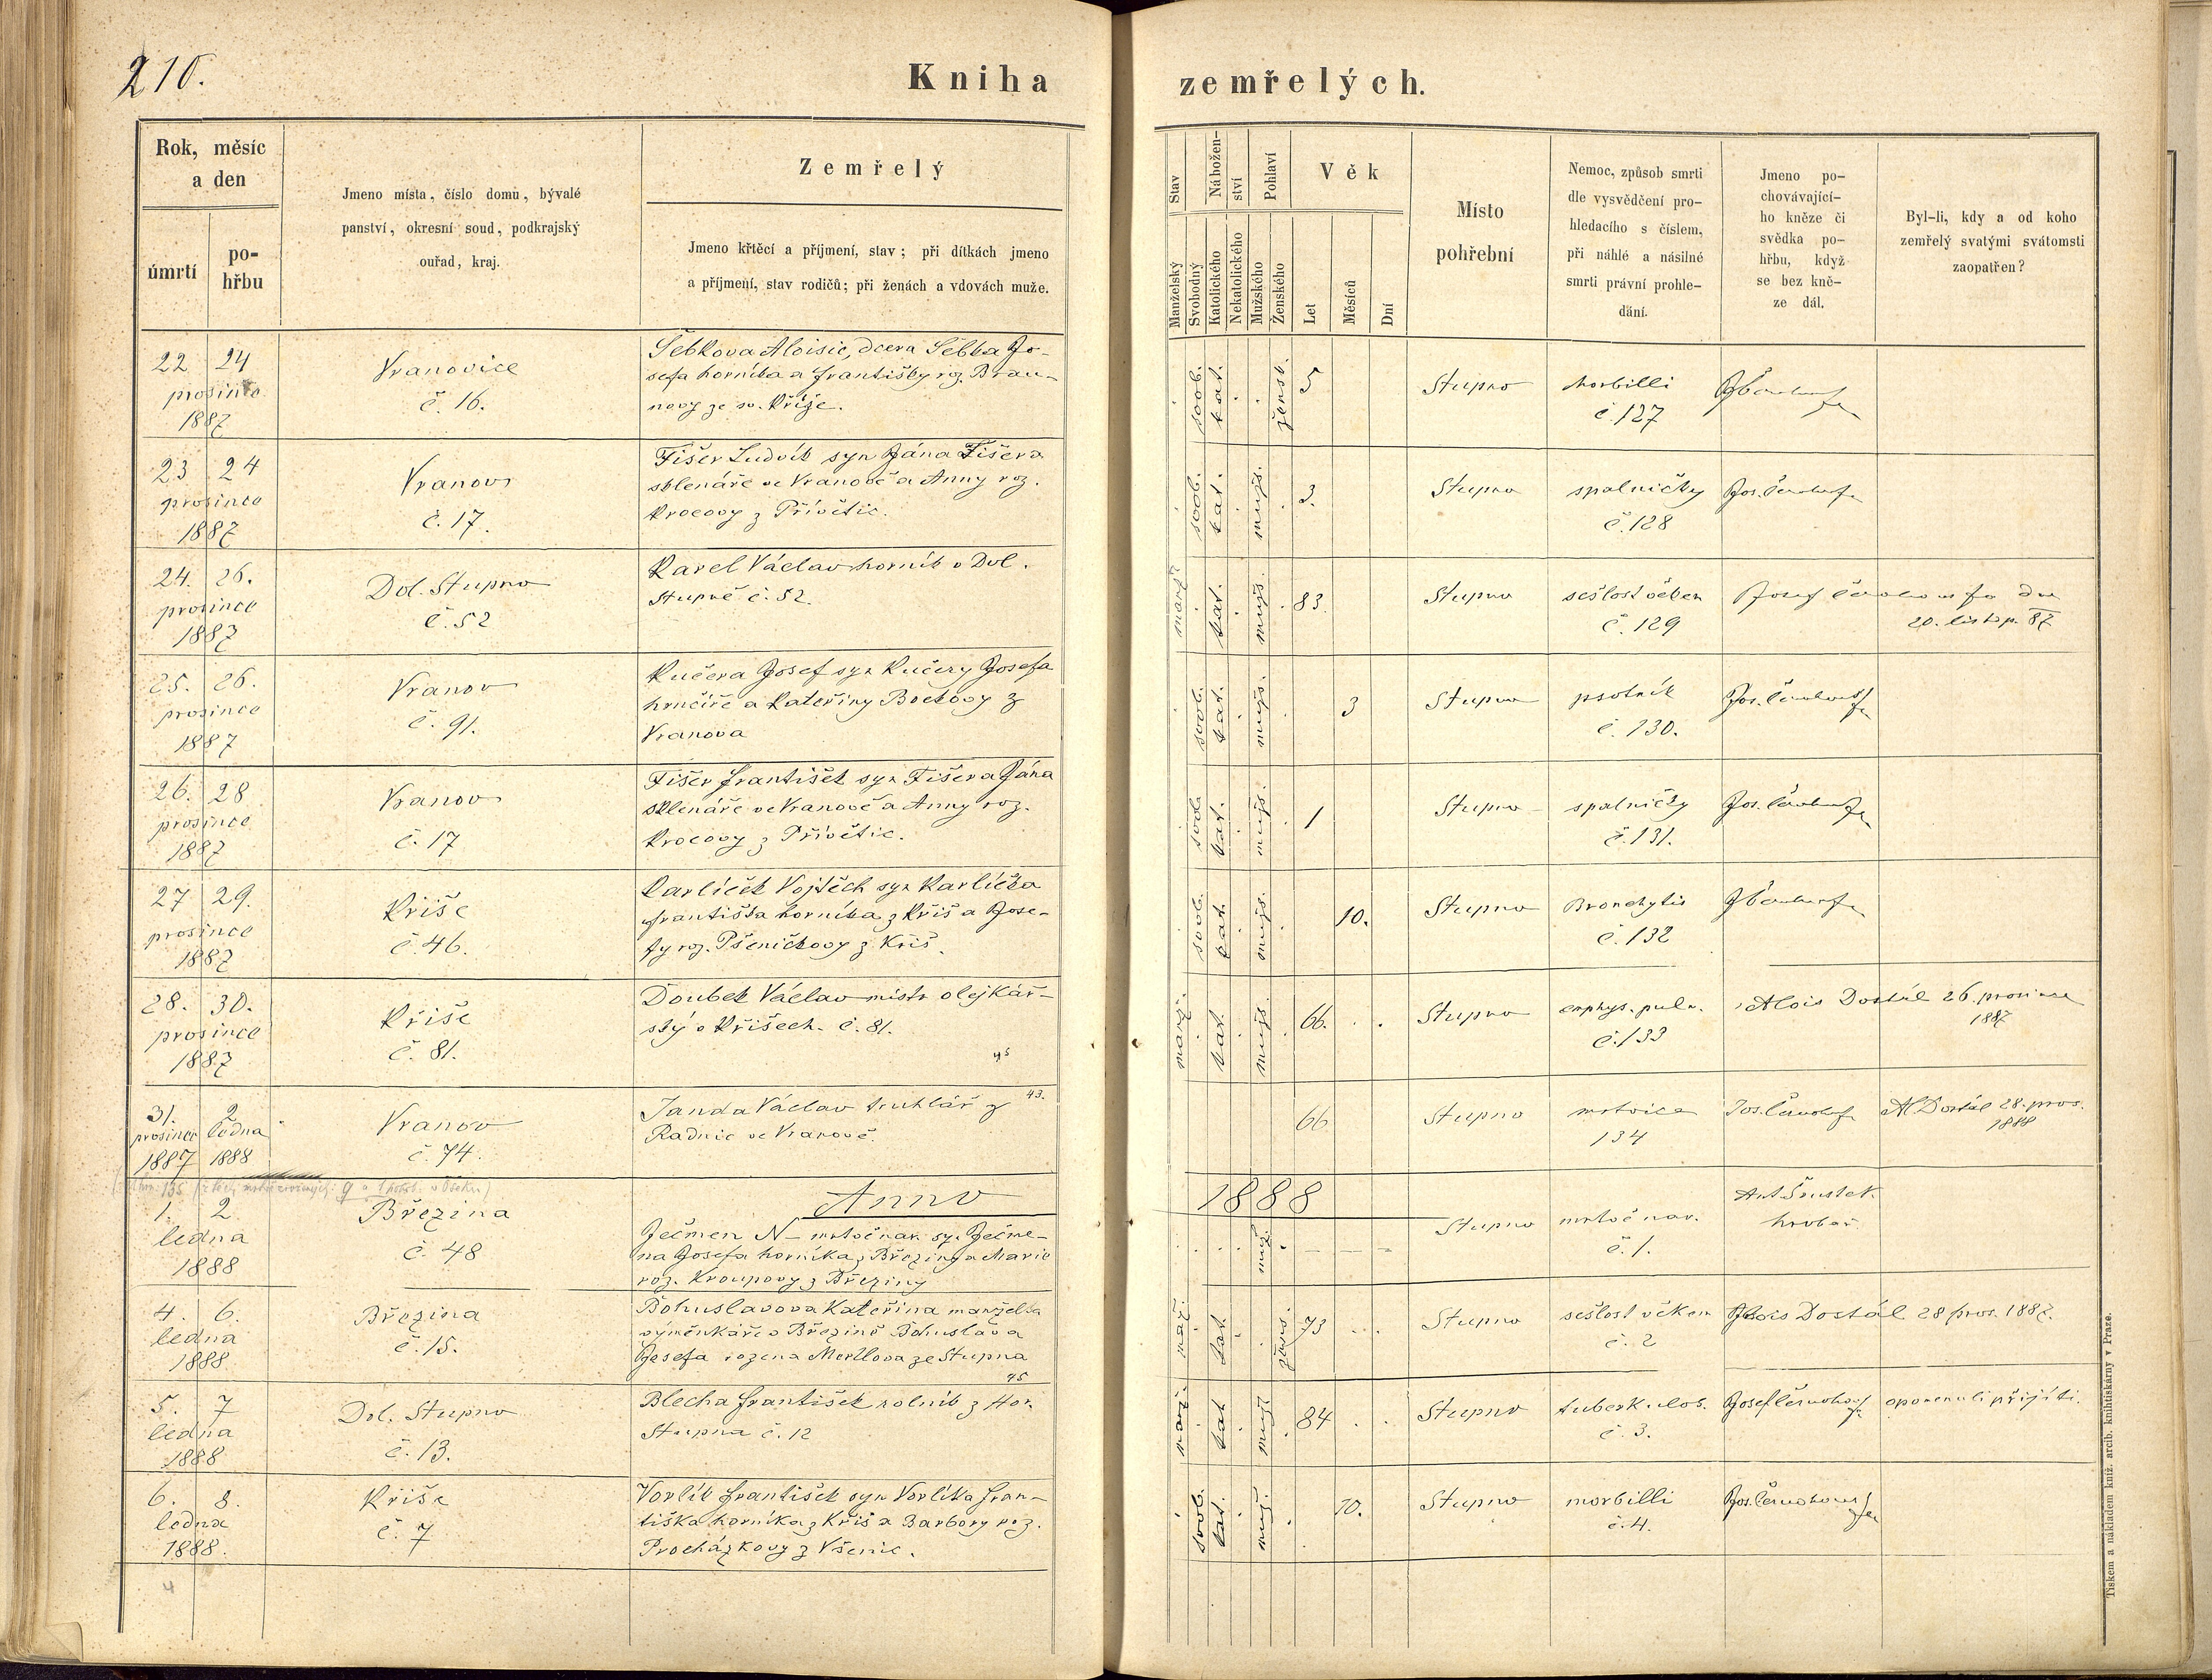 210.
Kniha zemřelých.
Rok, měsíc
a den
úmrtí
po-
hřbu
Jmeno místa, číslo domu, bývalé
panství, okresní soud, podkrajský
ouřad, kraj.
Zemřelý
Jmeno křtěcí a příjmení, stav; při dítkách jmeno
a příjmení, stav rodičů; při ženách a vdovách muže.
Stav
Manželský
Svobodný
Nábožen-
ství
Katolického
Nekatolického
Pohlaví
Mužského
Ženského
Věk
Let
Měsíců
Dní
Místo
pohřební
Nemoc, způsob smrti
dle vysvědčení pro-
hledacího s číslem,
při náhlé a násilné
smrti právní prohle-
dání.
Jmeno po-
chovávající-
ho kněze či
svědka po-
hřbu, když
se bez kně-
ze dál.
Byl-li, kdy a od koho
zemřelý svatými svátomsti
zaopatřen?
22 24
prosince
1887
Vranovice
č. 16.
Šebkova Aloisie, dcera Šebka Jo-
sefa horníka a Františky roz. Brau-
novy ze sv. Kříže.
svob.
kat.
žensk.
5
Stupno
morbilli
č. 127
23 24
prosince
1887
Vranov
č. 17.
Fišer Ludvík syn Jána Fišera
sklenáře ve Vranově a Anny roz.
Krocovy z Přívětic.
svob.
kat.
mužs.
3.
Stupno
spalničky
č. 128
24. 26.
prosince
1887
Dol. Stupno
č. 52
Karel Václav horník v Dol.
Stupně č. 52.
kat.
mužs.
83.
Stupno
sešlost věkem
č. 129
20. listop. 87
25. 26.
prosince
1887
Vranov
č. 91.
Kučera Josef syn Kučery Josefa
hrnčíře a Kateřiny Bockovy z
Vranova
svob.
kat.
mužs.
3
Stupno
psotník
č. 130.
26. 28
prosince
1887
Vranov
č. 17
Fišer František syn Fišera Jána
sklenáře ve Vranově a Anny roz.
Krocovy z Přívětic.
svob.
kat.
mužs.
1
Stupno
spalničky
č. 131.
27 29.
prosince
1887
Kříše
č. 46.
Karlíček Vojtěch syn Karlíčka
Františka horníka z Kříš a Jose-
fy roz. Pšeničkovy z Kříš.
svob.
kat.
mužs.
10.
Stupno
Bronchytis
č. 132
28. 30.
prosince
1887
Kříše
č. 81.
Doubek Václav mistr olejkář-
ský v Kříšech. č. 81.
manž.
kat.
mužs.
66.
Stupno
emphys. pulm.
č. 133
Alois Dostál 26. prosince
1887
31. 2
prosince ledna
1887 1888
Vranov
č. 74.
Janda Václav truhlář z
Radnic ve Vranově.
43.
66
Stupno
mrtvice
134
Al Dostál 28. pros.
1888
Anno 1888
1. 2
ledna
1888
Březina
č. 48
Ječmen N – mrtvě nar. syn Ječme-
na Josefa horníka z Březiny a Marie
roz. Kroupovy z Březiny
muž.
Stupno
mrtvě nar.
č. 1.
Ant Šnustek
hrobař.
4. 6.
ledna
1888
Březina
č. 15.
Bohuslavova Kateřina manželka
výměnkáře v Březině Bohuslava
Josefa rozena Mertlova ze Stupna
kat.
73
Stupno
sešlost věkem
č. 2
Alois Dostál 28 pros. 1887.
5. 7
ledna
1888
Dol. Stupno
č. 13.
Blecha František rolník z Hor.
Stupna č. 12
kat
84
Stupno
tuberkulos.
č. 3.
opomenuli přijíti.
6. 8.
ledna
1888.
Kříše
č. 7
Vorlík František syn Vorlíka Fran-
tiška horníka z Kříš a Barbory roz.
Procházkovy z Všenic.
svob.
kat.
muž.
10.
Stupno
morbilli
č. 4.
Tiskem a nákladem kníž. arcib. knihtiskárny v Praze.